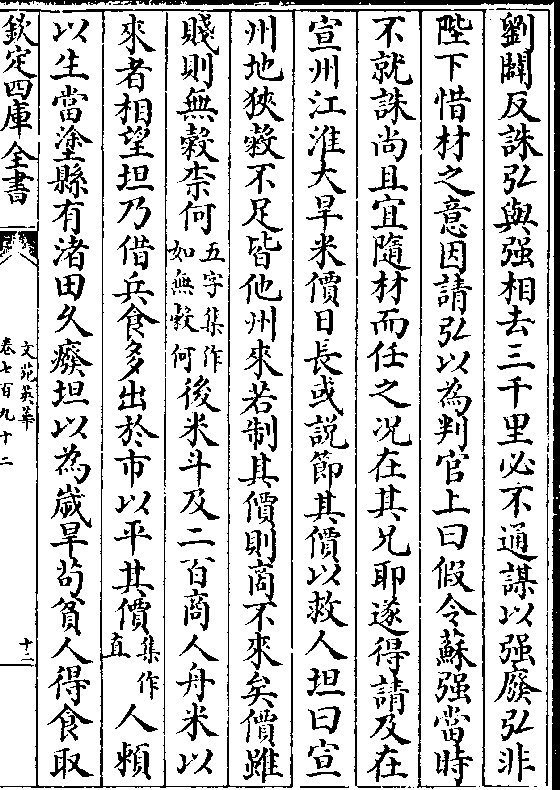 劉闢反誅弘與强相去三千里必不通謀以强廢弘非
陛下惜材之意因請弘以為判官上曰假令蘇强當時
不就誅尚且宜隨材而任之况在其兄耶遂得請及在
宣州江淮大旱米價日長或説節其價以救人坦曰宣
州地狹穀不足皆他州來若制其價則商不來矣價雖
賤則無穀柰何五字集作如無穀何後米斗及二百商人舟米以
來者相望坦乃借兵食多出於市以平其價集作直人賴
以生當塗縣有渚田久癈坦以為歲旱茍貧人得食取
欽定四庫全書
文苑英華
卷七百九十二
十二